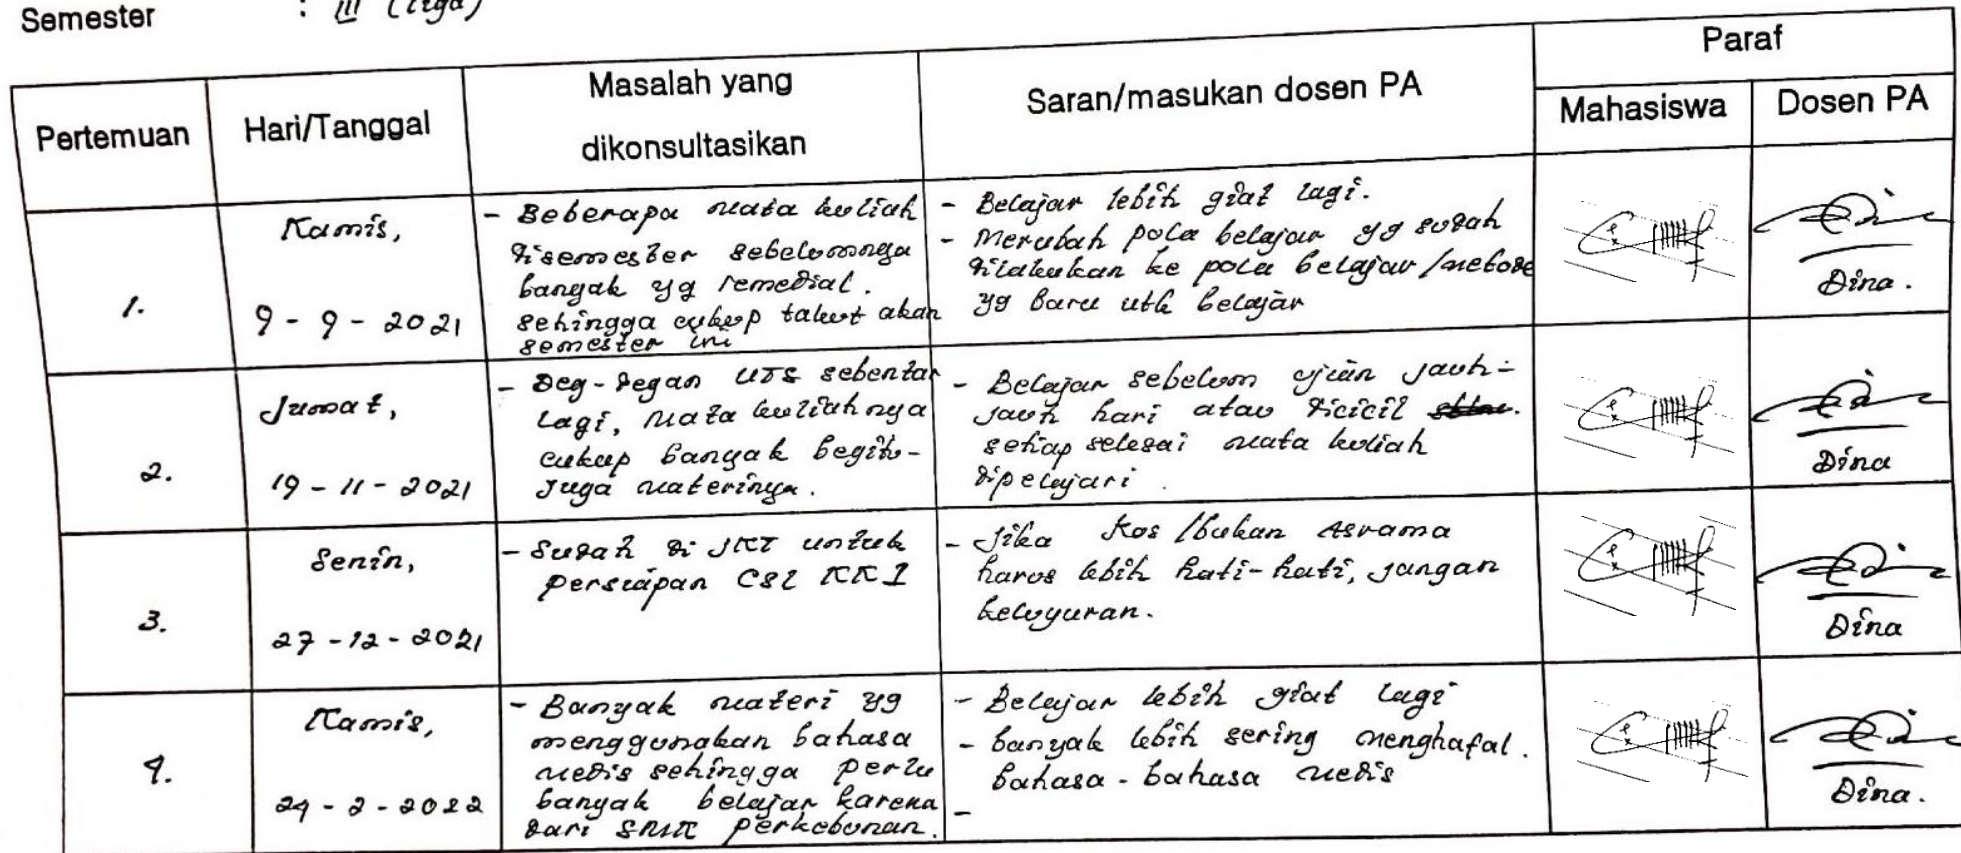 Semester : III (tiga)
Pertemuan
Hari/Tanggal
Masalah yang
dikonsultasikan
Saran/masukan dosen PA
Paraf
Mahasiswa
Dosen PA
1.
Kamis,
9 - 9 - 2021
- Beberapa mata kuliah
disemester sebelumnya
banyak yg remedial.
sehingga cukup takut akan
semester ini
- Belajar lebih giat lagi.
- Merubah pola belajar yg sudah
dilakukan ke pola belajar/metode
yg baru utk belajar
Dina.
2.
Jumat,
19 - 11 - 2021
- Deg-degan UTS sebentar
lagi, mata kuliahnya
cukup banyak begitu-
juga materinya.
- Belajar sebelum ujian jauh-
jauh hari atau dicicil
setiap selesai mata kuliah
dipelajari.
Dina
3.
Senin,
27 - 12 - 2021
- Sudah di JKT untuk
persiapan CSL KK1
- Jika kos/bukan Asrama
harus lebih hati-hati, jangan
keluyuran.
Dina
4.
Kamis,
24 - 2 - 2022
- Banyak materi yg
menggunakan bahasa
medis sehingga perlu
banyak belajar karena
dari SMK perkebunan.
- Belajar lebih giat lagi
- banyak lebih sering menghafal.
bahasa-bahasa medis
-
Dina.